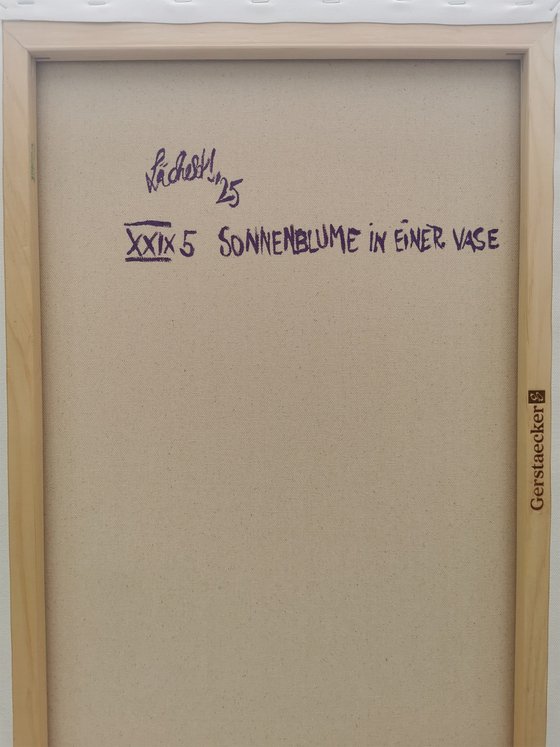 '25
XXIX 5 SONNENBLUME IN EINER VASE
Gerstaecker